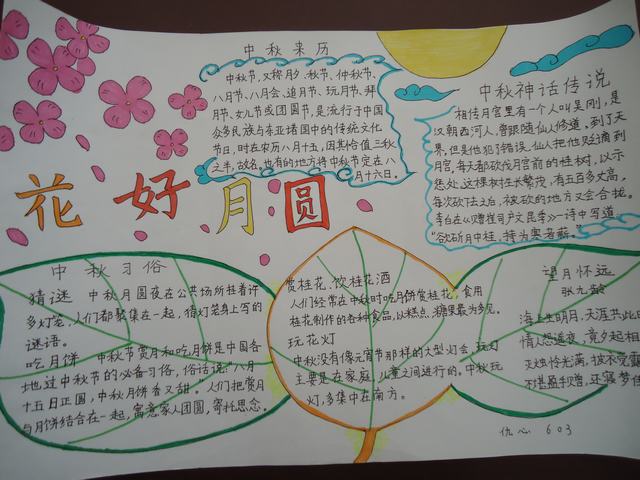 中秋来历
中秋节,又称月夕、秋节、仲秋节、
八月节、八月会、追月节、玩月节、拜
月节、女儿节或团圆节,是流行于中国
众多民族与东亚诸国中的传统文化
节日,时在农历八月十五,因其恰值三秋
之半,故名。也有的地方将中秋节定在八
月十六日。
中秋神话传说
相传月宫里有一个人叫吴刚,是
汉朝西河人,曾跟随仙人修道,到了天
界,但是他犯了错误,仙人把他贬谪到
月宫,每天都砍伐月宫前的桂树,以示
惩处。这棵树生长繁茂,有五百多丈高,
每次砍下去之后,被砍的地方又会合拢。
李白在《赠崔司户文昆季》一诗中写道
“欲斫月中桂,持为寒者薪。”
花好月圆
中秋习俗
猜谜 中秋月圆夜在公共场所挂着许
多灯笼,人们都聚集在一起,猜灯笼身上写的
谜语。
吃月饼 中秋节赏月和吃月饼是中国各
地过中秋节的必备习俗,俗话说:“八月
十五月正圆,中秋月饼香又甜。”人们把赏月
与月饼结合在一起,寓意家人团圆,寄托思念。
赏桂花、饮桂花酒
人们经常在中秋时吃月饼赏桂花,食用
桂花制作的各种食品,以糕点、糖果最为多见。
玩花灯
中秋没有像元宵节那样的大型灯会,玩灯
主要是在家庭、儿童之间进行的。中秋玩
灯,多集中在南方。
望月怀远
张九龄
海上生明月,天涯共此时
情人怨遥夜,竟夕起相
灭烛怜光满,披衣觉露
不堪盈手赠,还寝梦佳
仇心 603